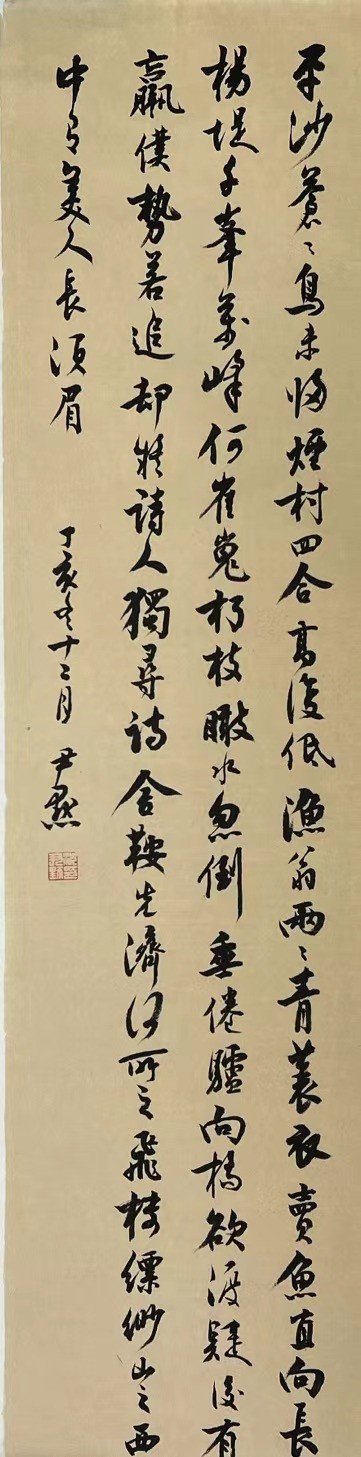 平沙蒼〻鳥未歸煙村四合高復低漁翁兩〻青蓑衣賣魚直向長
楊堤千峯萬峰何崔嵬朽枝瞰水忽倒垂倦驢向橋欲渡疑後有
羸僕勢若追却疑詩人獨尋詩舍鞍先濟何所之飛樓縹緲山之西
中有美人長須眉
丁亥冬十二月 尹默